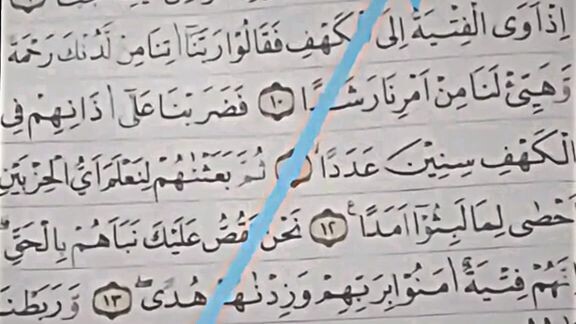 اِذْ اَوَى الْفِتْيَةُ اِلَى الْكَهْفِ فَقَالُوْا رَبَّنَآ اٰتِنَا مِنْ لَّدُنْكَ رَحْمَةً
وَّهَيِّئْ لَنَا مِنْ اَمْرِنَا رَشَدًا ١٠ فَضَرَبْنَا عَلٰٓى اٰذَانِهِمْ فِى
الْكَهْفِ سِنِيْنَ عَدَدًا ثُمَّ بَعَثْنٰهُمْ لِنَعْلَمَ اَيُّ الْحِزْبَيْنِ
اَحْصٰى لِمَا لَبِثُوْٓا اَمَدًا ١٢ نَحْنُ نَقُصُّ عَلَيْكَ نَبَاَهُمْ بِالْحَقِّ
اِنَّهُمْ فِتْيَةٌ اٰمَنُوْا بِرَبِّهِمْ وَزِدْنٰهُمْ هُدًى ١٣ وَرَبَطْنَا